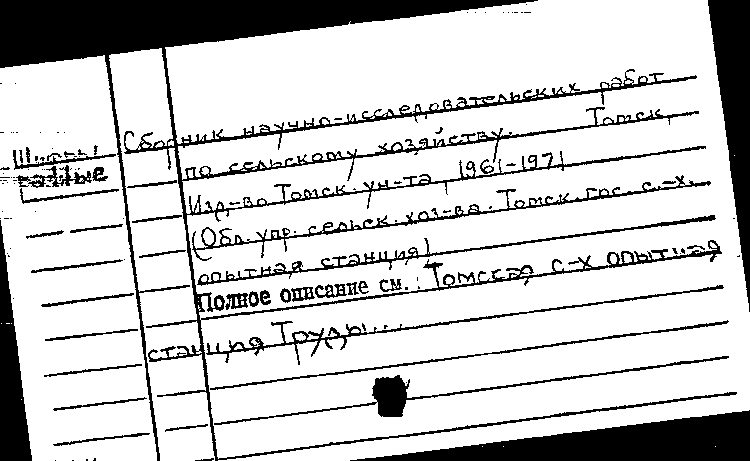 Сборник научно-исследовательских работ
по сельскому хозяйству. Томск,
Шифры
разные
Изд-во Томск. ун-та, 1961-1971
(Обл. упр. сельск. хоз-ва. Томск. гос. с.-х.
опытная станция)
Полное описание см.: Томская с-х опытная
станция Труды...